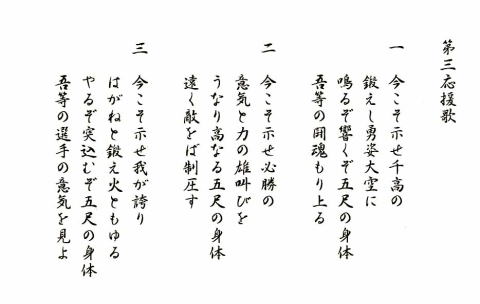 第三応援歌
一 今こそ示せ千高の
鍛えし勇姿大空に
鳴るぞ響くぞ五尺の身体
吾等の闘魂もり上る
二 今こそ示せ必勝の
意気と力の雄叫びを
うなり高なる五尺の身体
遠く敵をば制圧す
三 今こそ示せ我が誇り
はがねと鍛え火ともゆる
やるぞ突込むぞ五尺の身体
吾等の選手の意気を見よ